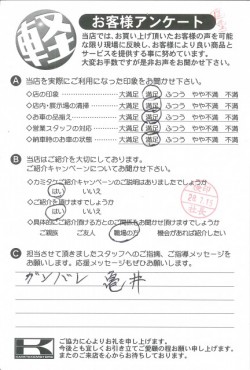 軽
お客様アンケート
当店では、お買い上げ頂いたお客様の声を可能
な限り現場に反映し、お客様により良い商品と
サービスを提供する事に努めています。
大変お手数ですが是非お声をお聞かせ下さい。
A 当店を実際にご利用になった印象をお聞かせ下さい。
◇店の印象 大満足 満足 ふつう やや不満 不満
◇店内・展示場の清掃 大満足 満足 ふつう やや不満 不満
◇お車の品揃え 大満足 満足 ふつう やや不満 不満
◇営業スタッフの対応 大満足 満足 ふつう やや不満 不満
◇納車時のお車の状態 大満足 満足 ふつう やや不満 不満
B 当店はご紹介を大切にしております。
ご紹介キャンペーンについてお聞かせ下さい。
◇カミタケご紹介キャンペーンのご説明はありましたでしょうか
はい いいえ
◇ご紹介を頂けますでしょうか
はい いいえ
◇具体的にご紹介頂ける方とのご関係もお聞かせ頂けますでしょうか
ご親族 ご友人 職場の方 機会があれば紹介したい
C 担当させて頂きましたスタッフへのご指摘、ご指導メッセージを
お願いします。応援メッセージもぜひお願いします。
ガンバレ 亀井
K
ご協力に心よりお礼を申し上げます。
今後とも宜しくお引き立てご愛顧の程お願い申し上げます。
またのご来店を心からお待ちしております。